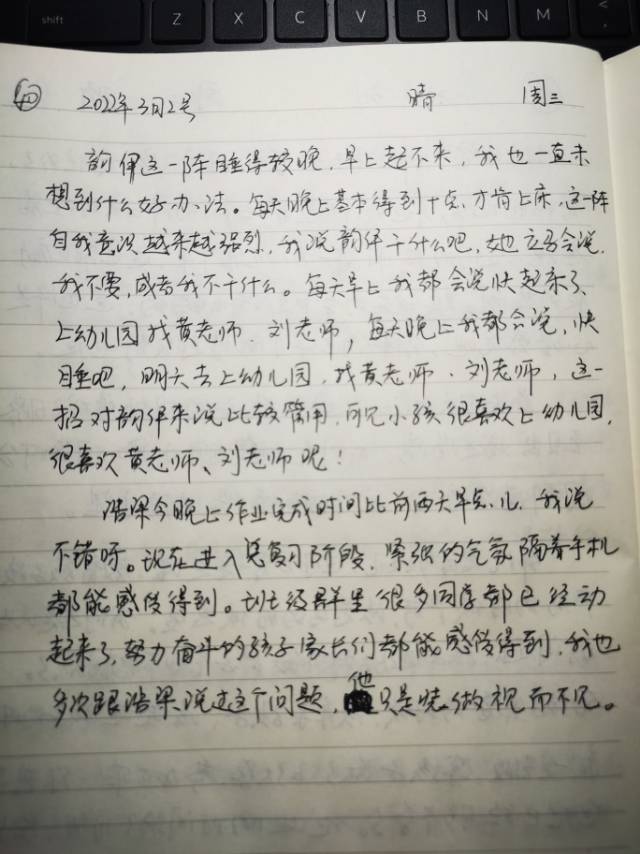 shift Z X C V B N M <
④ 2022年3月2号 晴 周三
韵伊这一阵睡得较晚，早上起不来，我也一直未
想到什么好办法。每天晚上基本得到十点才肯上床，这一阵
自我意识越来越强烈，我说韵伊干什么吧，她立马会说，
我不要，或者我不干什么。每天早上我都会说快起来了，
上幼儿园找黄老师、刘老师，每天晚上我都会说，快
睡吧，明天去上幼儿园，找黄老师、刘老师，这一
招对韵伊来说比较管用，可见小孩很喜欢上幼儿园，
很喜欢黄老师、刘老师呢！
浩果今晚上作业完成时间比前两天早点儿，我说
不错呀。现在进入总复习阶段，紧张的气氛隔着手机
都能感受得到。班级群里很多同学都已经动
起来了，努力奋斗的孩子家长们都能感受得到，我也
多次跟浩果说过这个问题，他只是装做视而不见。